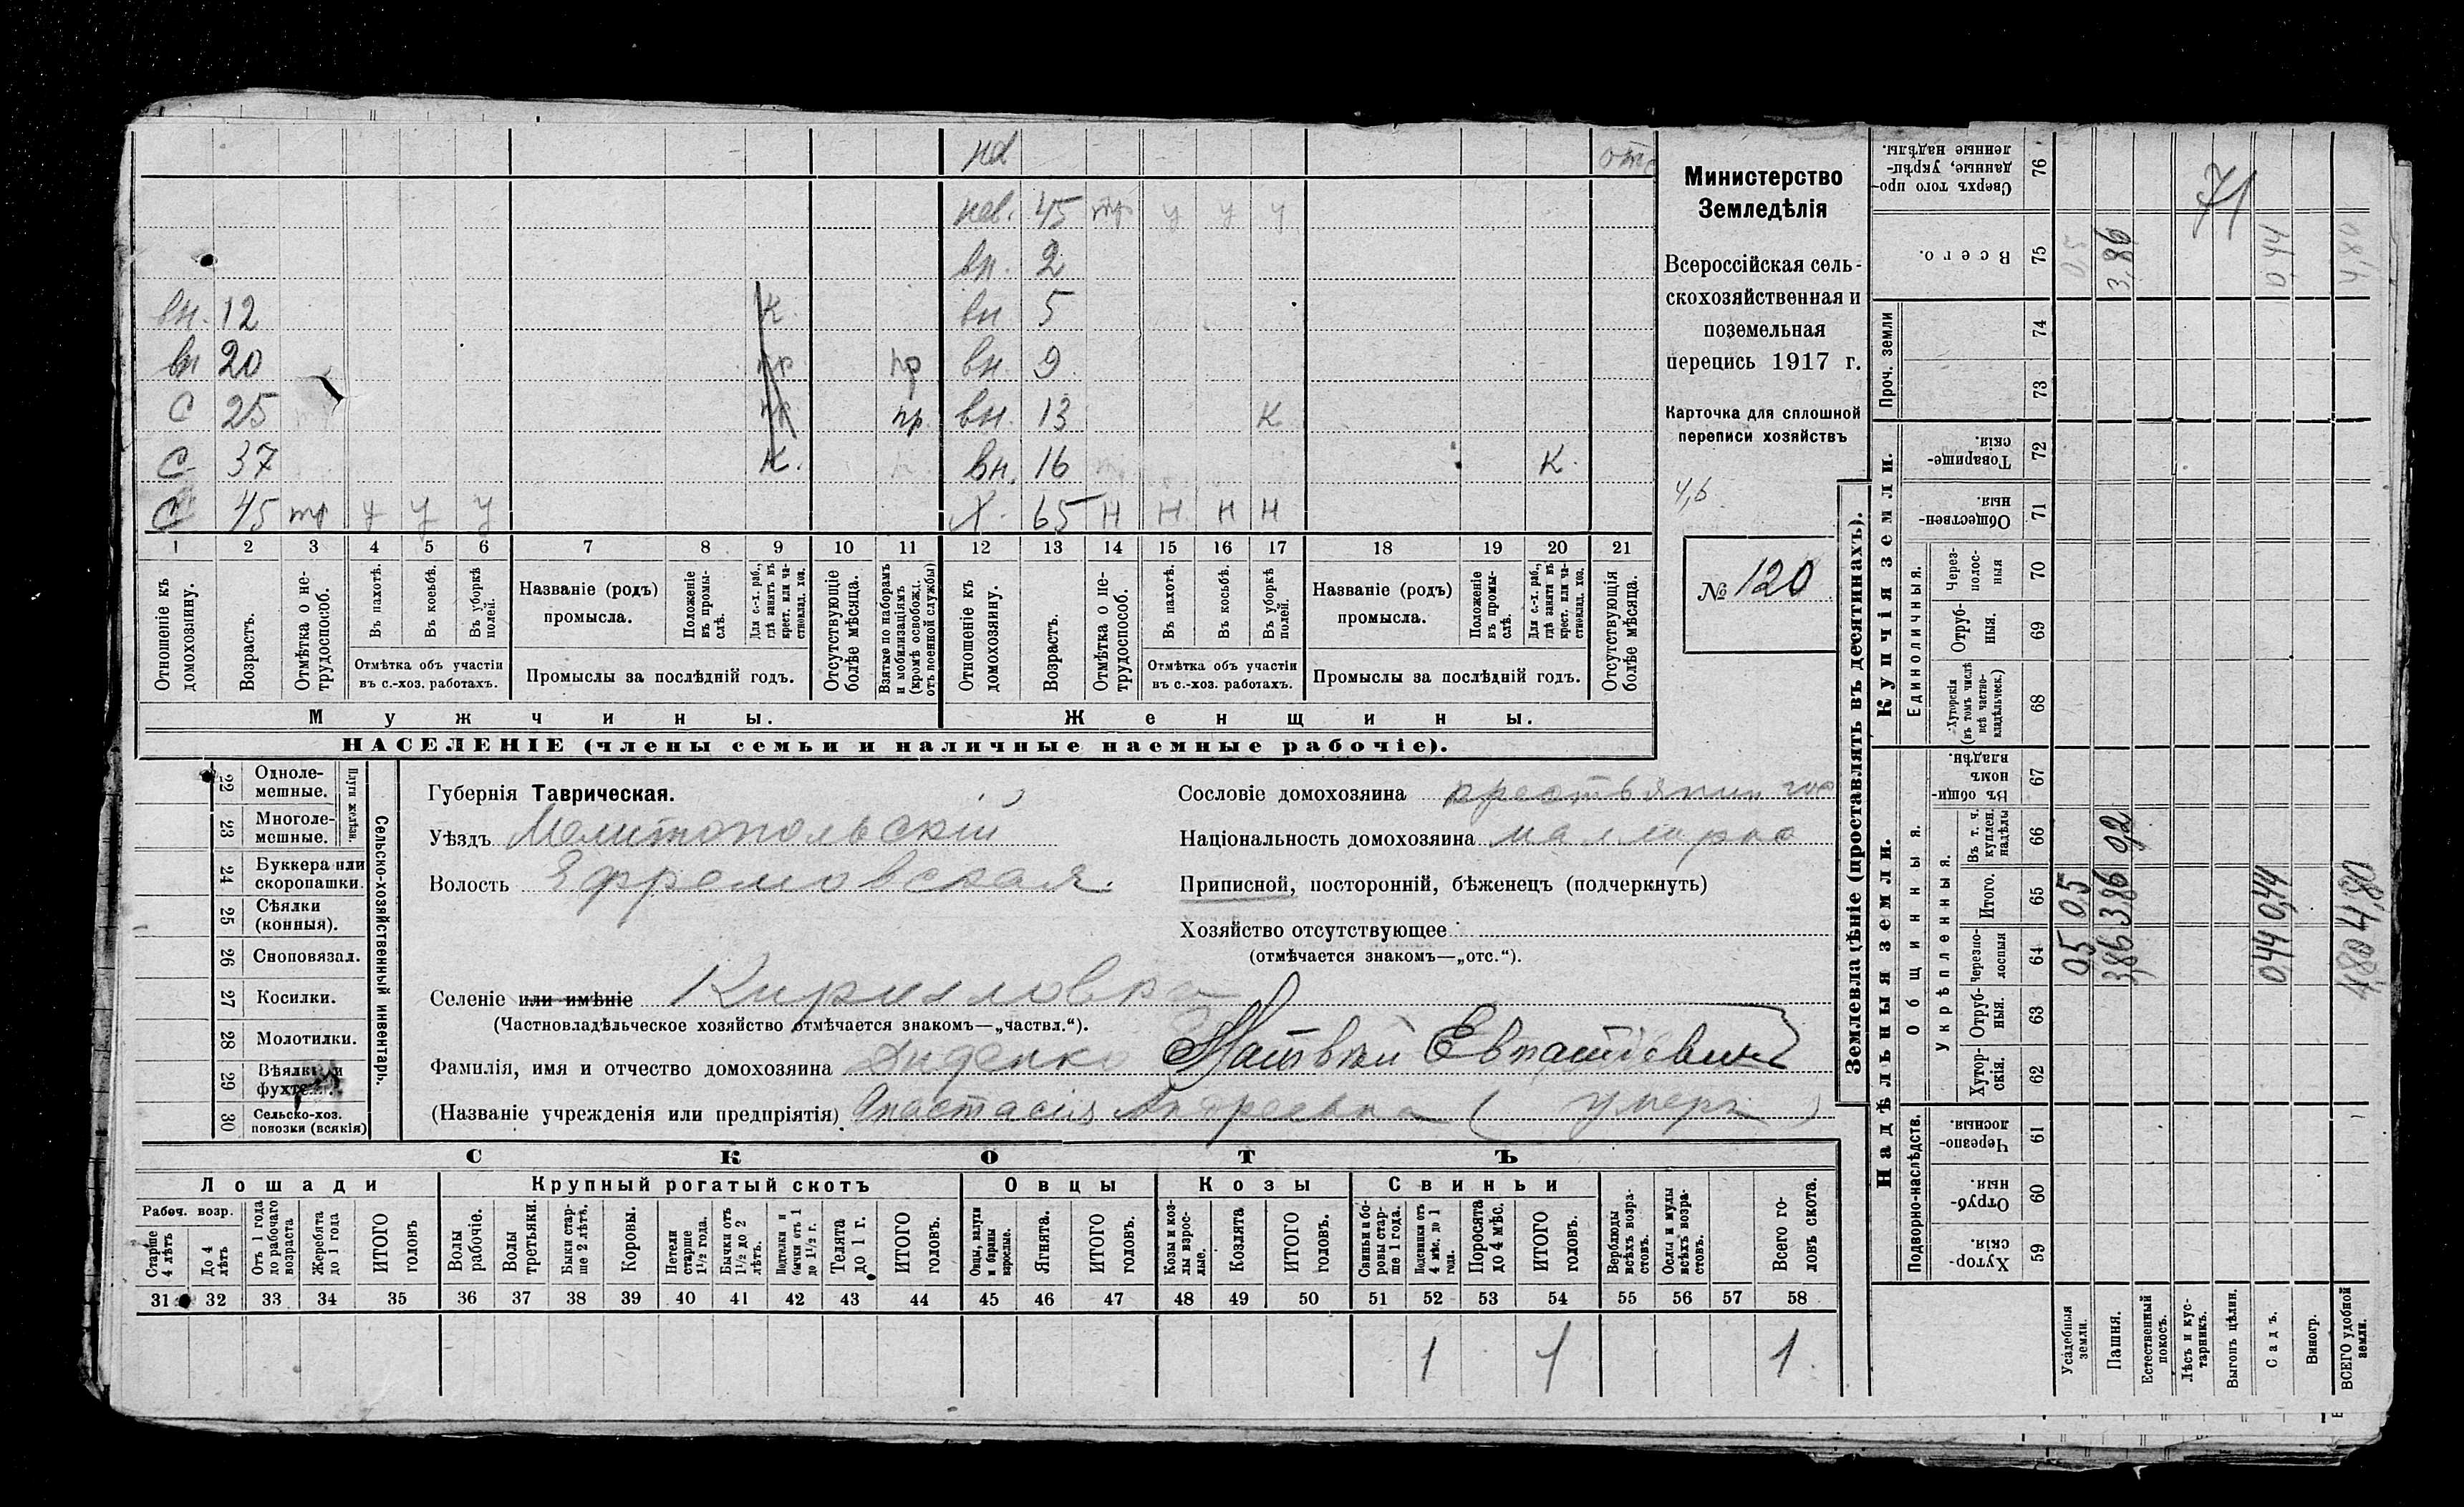 на отс
нев. 45 тр у у у
вн. 2
вн. 12 К вн 5
вн 20 пр пр вн. 9
С 25 пр пр. вн. 13 К
С 37 К. вн. 16 К.
С 45 тр у у у Х. 65 Н Н Н Н
1 2 3 4 5 6 7 8 9 10 11 12 13 14 15 16 17 18 19 20 21
Отношеніе къ домохозяину.
Возрастъ.
Отмѣтка о нетрудоспособ.
Въ пахотѣ.
Въ косьбѣ.
Въ уборкѣ полей.
Отмѣтка объ участіи
въ с.-хоз. работахъ.
Названіе (родъ)
промысла.
Положеніе въ промыслѣ.
Для с.-х. раб., гдѣ занятъ въ крест. или частновлад. хоз.
Промыслы за послѣдній годъ.
Отсутствующіе болѣе мѣсяца.
Взятые по наборамъ и мобилизаціямъ (кромѣ освобожд. отъ военной службы)
Отношеніе къ домохозяину.
Возрастъ.
Отмѣтка о нетрудоспособ.
Въ пахотѣ.
Въ косьбѣ.
Въ уборкѣ полей.
Отмѣтка объ участіи
въ с.-хоз. работахъ.
Названіе (родъ)
промысла.
Положеніе въ промыслѣ.
Для с.-х. раб., гдѣ занята въ крест. или частновлад. хоз.
Промыслы за послѣдній годъ.
Отсутствующія болѣе мѣсяца.
Мужчины. Женщины.
НАСЕЛЕНІЕ (члены семьи и наличные наемные рабочіе).
Министерство
Земледѣлія
Всероссійская сель-
скохозяйственная и
поземельная
перепись 1917 г.
Карточка для сплошной
переписи хозяйствъ
4,6
№ 120
Сельско-хозяйственный инвентарь.
Плуги желѣзн.
22 Одноле-
мешные.
23 Многоле-
мешные.
24 Буккера или
скоропашки.
25 Сѣялки
(конныя).
26 Сноповязал.
27 Косилки.
28 Молотилки.
29 Вѣялки и
30 Сельско-хоз.
повозки (всякія)
Губернія Таврическая.
Уѣздъ Мелитопольскій
Волость Ефремовская.
Селеніе или имѣніе Кирилловка
(Частновладѣльческое хозяйство отмѣчается знакомъ—„частвл.“).
Фамилія, имя и отчество домохозяина Диденко Матвѣй
(Названіе учрежденія или предпріятія) Анастасія Андреевна ( умеръ )
Сословіе домохозяина крестьянин
Національность домохозяина малорос
Приписной, посторонній, бѣженецъ (подчеркнуть)
Хозяйство отсутствующее
(отмѣчается знакомъ—„отс.“).
СКОТЪ
Лошади Крупный рогатый скотъ Овцы Козы Свиньи
Рабоч. возр.
Старше 4 лѣтъ
До 4 лѣтъ
Отъ 1 года до рабочаго возраста
Жеребята до 1 года
ИТОГО головъ
Волы рабочіе.
Волы третьяки.
Быки старше 2 лѣтъ.
Коровы.
Нетели старше 1½ года.
Бычки отъ 1½ до 2 лѣтъ.
Подтелки и бычки отъ 1 до 1½ г.
Телята до 1 г.
ИТОГО головъ.
Овцы, валухи и бараны взрослые.
Ягнята.
ИТОГО головъ.
Козы и козлы взрослые.
Козлята
ИТОГО головъ.
Свиньи и боровы старше 1 года.
Подсвинки отъ 4 мѣс. до 1 года.
Поросята до 4 мѣс.
ИТОГО головъ.
Верблюды всѣхъ возрастовъ.
Ослы и мулы всѣхъ возрастовъ.
Всего головъ скота.
31 32 33 34 35 36 37 38 39 40 41 42 43 44 45 46 47 48 49 50 51 52 53 54 55 56 57 58
1 1 1.
Землевладѣніе (проставлять въ десятинахъ).
Надѣльныя земли. Купчія земли.
Подворно-наслѣдств.
Общинныя.
Укрѣпленныя.
Единоличныя.
Проч. земли
Сверхъ того проданные, укрѣпленные надѣлы. 76
Всего. 75 0,5 3,86 0,44 4,80
71
74
73
Товарищескія. 72
Общественныя. 71
Черезполосныя 70
Отрубныя. 69
Хуторскія (въ томъ числѣ всѣ частновладѣльческ.) 68
Въ общинномъ владѣн. 67
Въ т. ч. куплен. надѣлы 66 0,2
Итого. 65 0,5 3,86 0,44 4,80
Черезполосныя 64 0,5 3,86 0,44 4,80
Отрубныя. 63
Хуторскія. 62
Черезполосныя. 61
Отрубныя. 60
Хуторскія. 59
Усадебныя земли.
Пашня.
Естественный покосъ.
Лѣсъ и кустарникъ.
Выгонъ цѣлин.
Садъ.
Виногр.
ВСЕГО удобной земли.